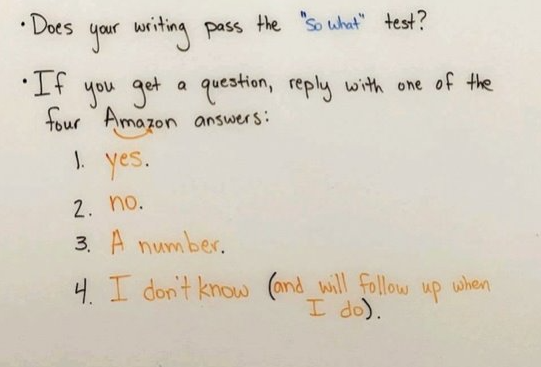 · Does your writing pass the "So what" test?
· If you get a question, reply with one of the
four Amazon answers:
1. yes.
2. no.
3. A number.
4. I don't know (and will follow up when
I do).